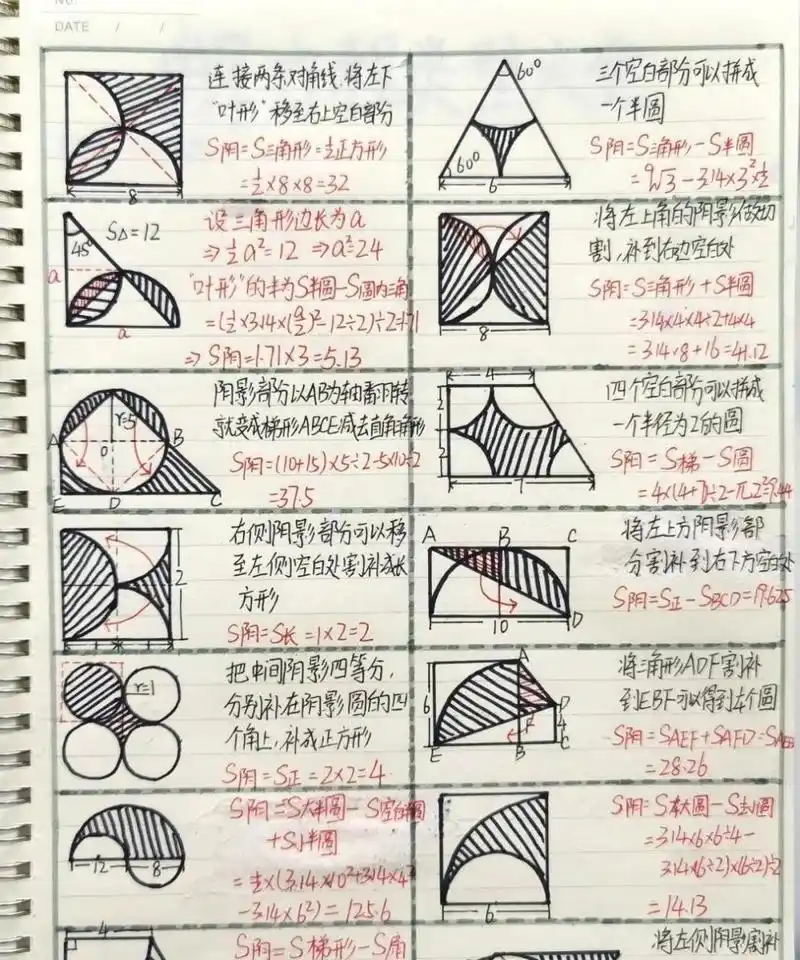 NO.
DATE / /
连接两条对角线,将左下
"叶形"移至右上空白部分
S阴=S三角形=½正方形
=½×8×8=32
8
60°
60°
6
三个空白部分可以拼成
一个半圆
S阴=S三角形-S半圆
=9√3-3.14×3²×½
45°
S△=12
a
a
设三角形边长为a
⇒½a²=12 ⇒a²=24
"叶形"的半为S半圆-S圆内三角
⇒S阴=1.71×3=5.13
8
将左上角的阴影做切
割,补到右边空白处
S阴=S三角形+S半圆
=3.14×4×4÷2+4×4
=3.14×8+16=41.12
r=5
A
O
B
E
D
C
阴影部分以AB为轴翻下转
就变成梯形ABCE减去直角三角形
S阴=(10+15)×5÷2-5×10÷2
=37.5
4
2
2
7
四个空白部分可以拼成
一个半径为2的圆
S阴=S梯-S圆
=4×(4+7)÷2-π·2²=9.44
2
右侧阴影部分可以移
至左侧空白处割补成长
方形
S阴=S长=1×2=2
A
B
C
10
D
将左上方阴影部
分割补到右下方空白处
S阴=S正-SBCD=19.625
r=1
把中间阴影四等分,
分别补在阴影圆的四
个角上,补成正方形
S阴=S正=2×2=4
A
6
D
F
4
E
B
C
将三角形ADF割补
到EBF可以得到¼个圆
S阴=SAEF+SAFD=SAEB
=28.26
12
8
S阴=S大半圆-S空白半圆
+S小半圆
=½×(3.14×10²+3.14×4²
-3.14×6²)=125.6
6
S阴=S¼大圆-S½小圆
=3.14×6×6÷4-
3.14×(6÷2)×(6÷2)÷2
=14.13
4
S阴=S梯形-S扇
将左侧阴影割补